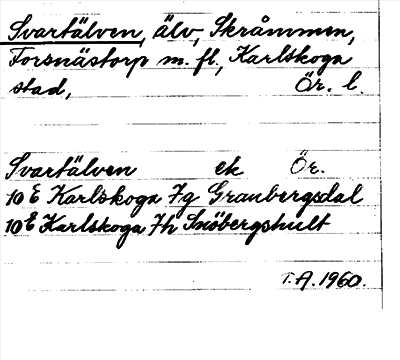 Svartälven, älv, Skråmmen,
Torsnästorp m. fl., Karlskoga
stad, Ör. l.
Svartälven ek Ör.
10 E Karlskoga 7g Granbergsdal
10 E Karlskoga 7h Snöbergshult
T.A. 1960.